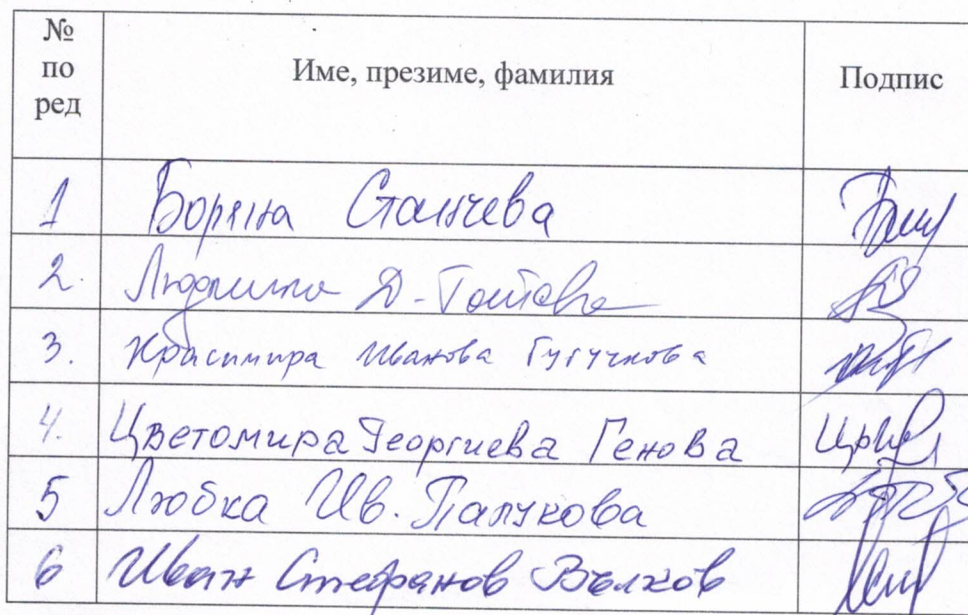 № по ред Име, презиме, фамилия Подпис
1 Боряна Станчева
2. Людмила Д.
3. Красимира Иванова Гугучкова
4. Цветомира Георгиева Генова
5 Любка Ив.
6 Иван Стефанов Вълков